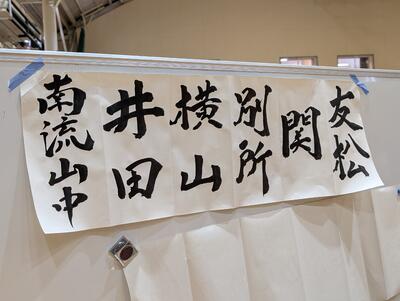 友松
関
別所
横山
井田
南流山中